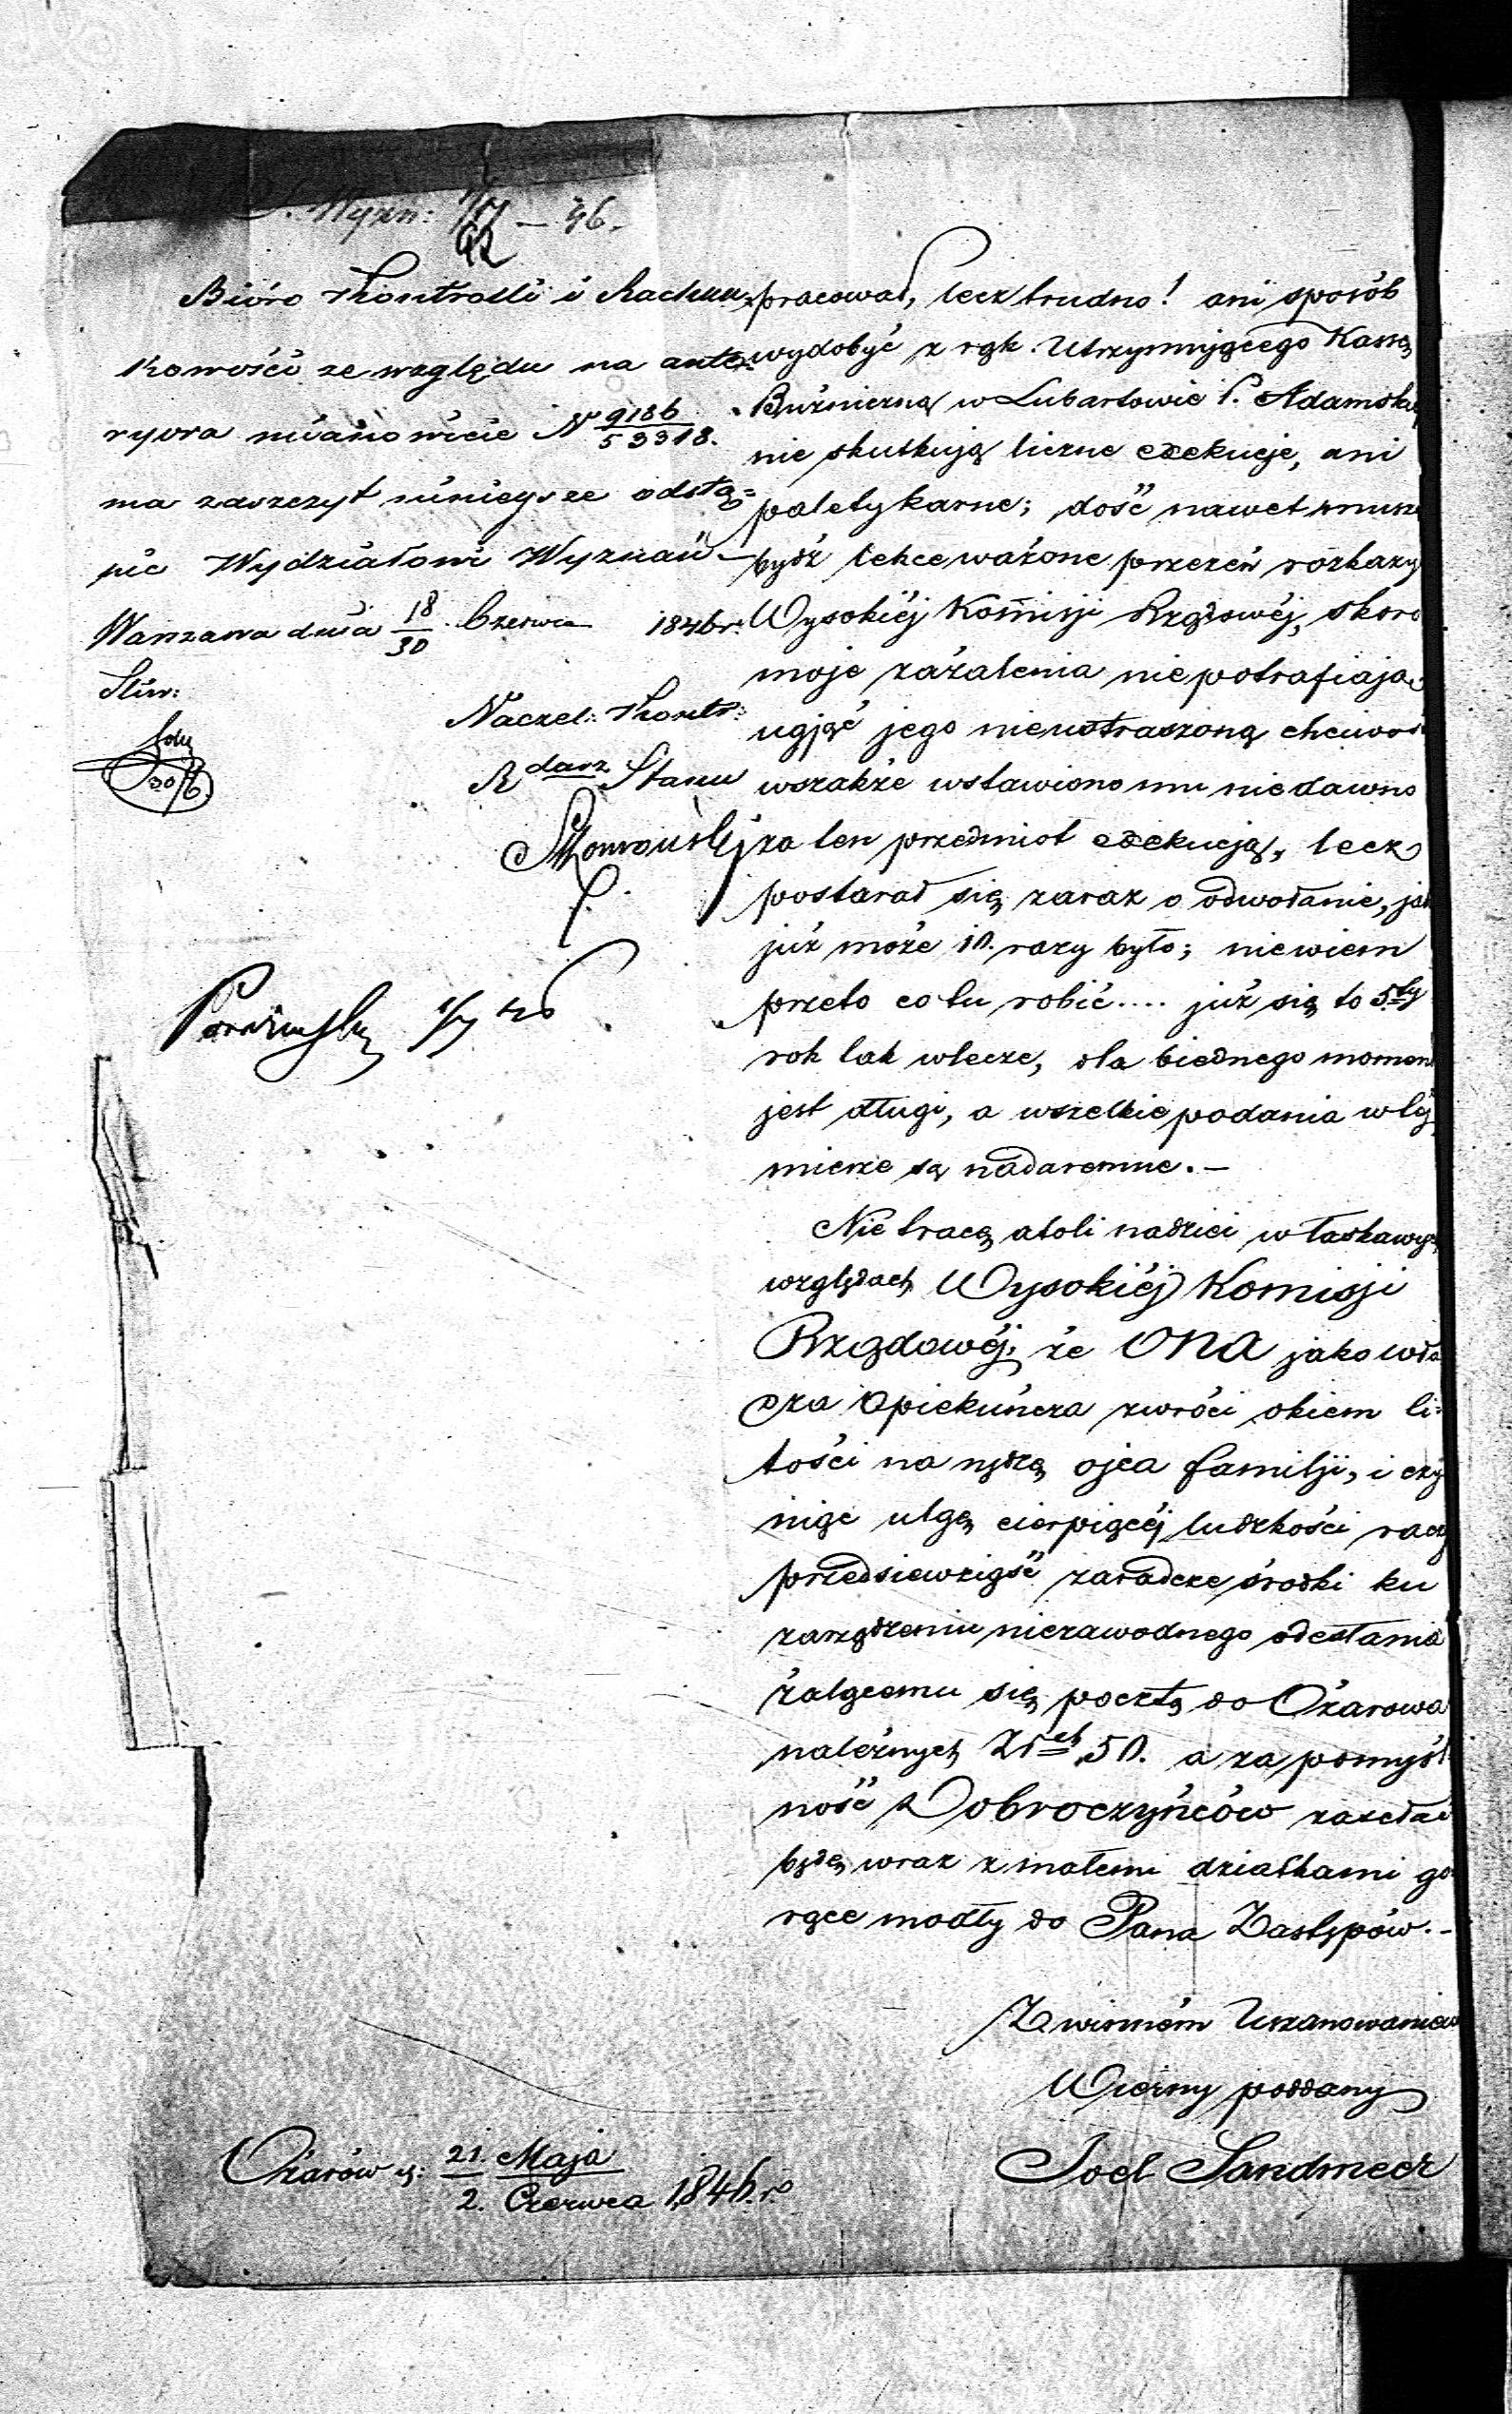 Wyzn: 1/7 – 46.
Bióro Kontrolli i Rachun=
kowości ze względu na ante=
ryora mianowicie N 9186/53318.
ma zaszczyt niniejsze odstą=
pić Wydziałowi Wyznań –
Warszawa dnia 18/30 Czerwca 1846 r.
Naczel: Kontr:
R darz Stanu
30/6
1/7 46
pracował, lecz trudno! ani sposób
wydobyć z rąk Utrzymującego Kassę
Bużniczną w Lubartowie P. Adamsk
nie skutkują liczne exekucje, ani
palety karne; dość nawet
bydź lekce ważone przezeń rozkazy
Wysokiéj Komisji Rządowéj, skoro
moje zażalenia nie potrafiają
ugjąć jego nieustraszoną chciwoś
wszakże wstawiono mu niedawno
za ten przedmiot exekucją, lecz
postarał się zaraz o odwołanie, jak
już może 10. razy było; niewiem
przeto co tu robić.... już się to 5ty
rok tak wlecze, dla biednego moment
jest długi, a wszelkie podania w téj
mierze są nadaremne. –
Nie tracę atoli nadziei w łaskawych
względach Wysokiéj Komisji
Rządowéj, że ONA jako wła
dza Opiekuńcza zwróci okiem li=
tości na nędzę ojca familji, i czy
niąc ulgę cierpiącéj ludzkości raczy
przedsiewziąść zaradcze środki ku
zarządzeniu niezawodnego odesłania
żalącemu się pocztą do Ożarowa
należnych Złch 50. a za pomyśl
ność Dobroczyńców zasełać
będę wraz z małemi dziatkami go
rące modły do Pana Zastępów. –
Z winném Uszanowaniem
Wierny poddany
Joel Sandmecr
Ożarów d: 21. Maja / 2. Czerwca 1846. r.